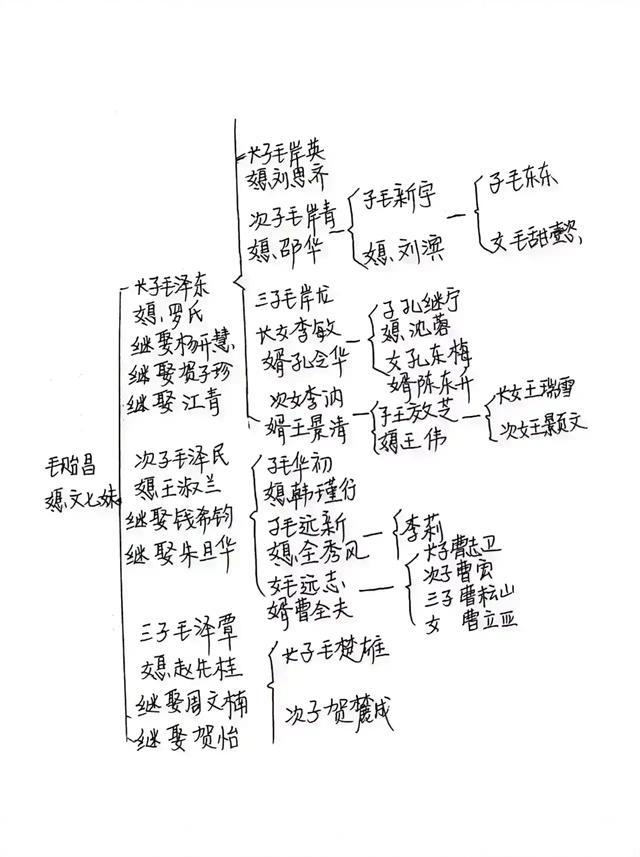 长子毛岸英
媳刘思齐
次子毛岸青
媳、邵华
子毛新宇
媳、刘滨
子毛东东
女毛甜懿
长子毛泽东
媳、罗氏
继娶杨开慧
继娶贺子珍
继娶江青
三子毛岸龙
长女李敏
婿孔令华
子孔继宁
媳、沈蓉
女孔东梅
婿陈东升
次女李讷
婿王景清
子王效芝
媳王伟
长女王瑞雪
次女王景页文
毛贻昌
媳、文七妹
次子毛泽民
媳王淑兰
继娶钱希钧
继娶朱旦华
子毛华初
媳、韩瑾行
子毛远新
媳、全秀风
李莉
女毛远志
婿曹全夫
长子曹志卫
次子曹宏
三子曹耘山
女 曹立亚
三子毛泽覃
媳、赵先桂
继娶周文楠
继娶贺怡
长子毛楚雄
次子贺麓成